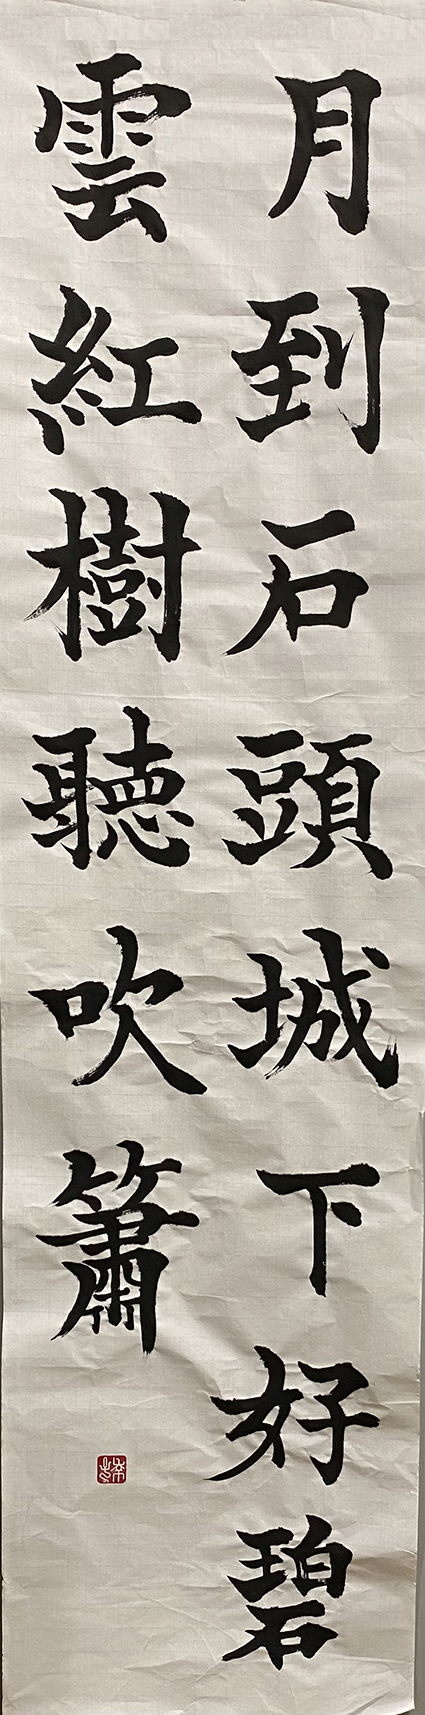 月到石頭城下好碧
雲紅樹聽吹簫